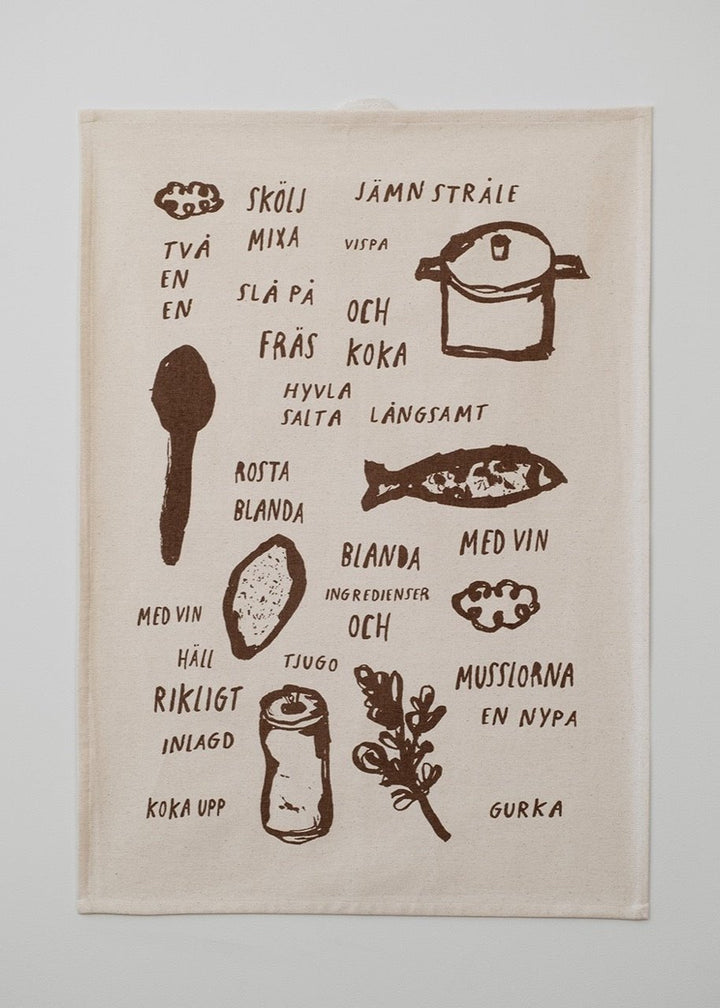 SKÖLJ
JÄMN STRÅLE
MIXA
VISPA
TVÅ
EN
EN
SLÅ PÅ
OCH
FRÄS
KOKA
HYVLA
SALTA
LÅNGSAMT
ROSTA
BLANDA
MED VIN
BLANDA
INGREDIENSER
OCH
MED VIN
HÄLL
TJUGO
MUSSLORNA
RIKLIGT
EN NYPA
INLAGD
KOKA UPP
GURKA